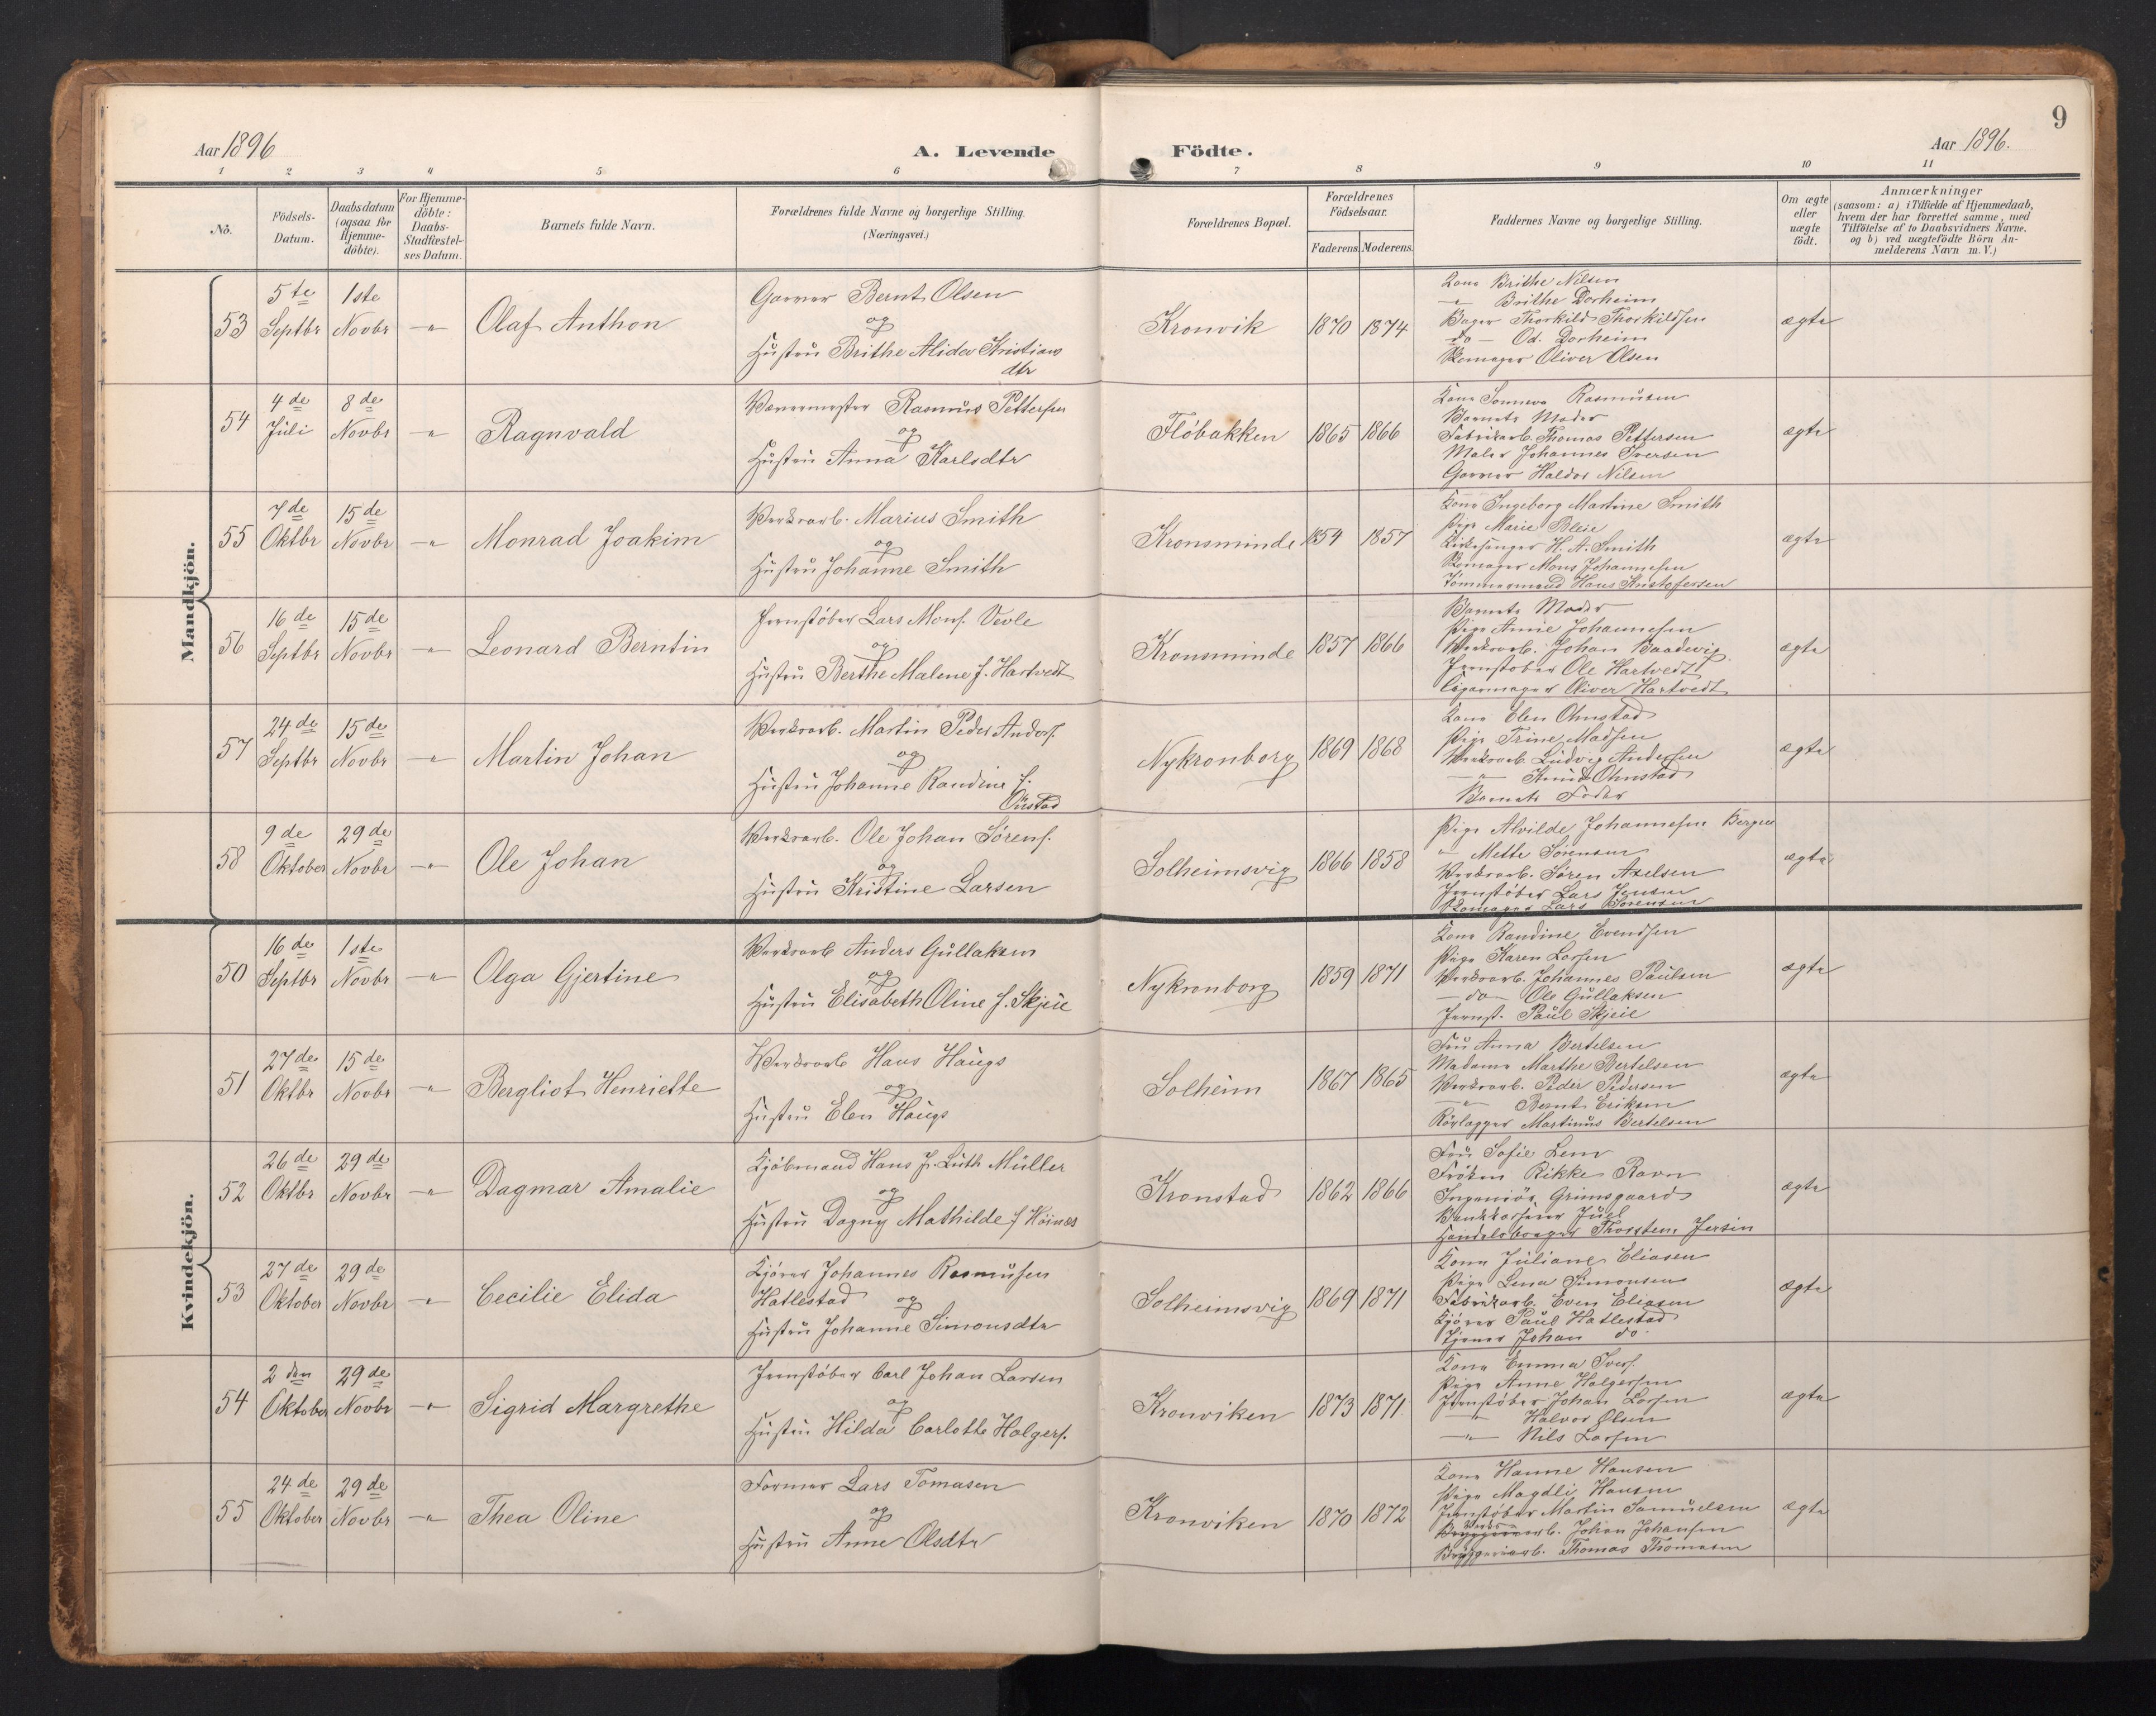 9
Aar 1896
A. Levende Födte.
Aar 1896.
1 2 3 4 5 6 7 8 9 10 11
Nö.
Födsels-Datum.
Daabsdatum (ogsaa for Hjemme-döbte).
For Hjemme-döbte: Daabs-Stadfæstel-ses Datum.
Barnets fulde Navn.
Forældrenes fulde Navne og borgerlige Stilling.
(Næringsvei.)
Forældrenes Bopæl.
Forældrenes Födselsaar.
Faderens. Moderens.
Faddernes Navne og borgerlige Stilling.
Om ægte eller uægte födt.
Anmærkninger
(saasom: a) i Tilfælde af Hjemmedaab,
hvem der har forrettet samme, med
Tilföielse af to Daabsvidners Navne,
og b) ved uægtefödte Börn An-
melderens Navn m. V.)
Mandkjön.
53 5te Septbr 1ste Novbr -"- Olaf Anthon
Garver Bernt Olsen
og
Hustru Brithe Alida Kristians
dtr
Kronvik 1870 1874
Kone Brithe Nilsen
-"- Brithe Dorheim
Bager Thorkild Thorkildsen
do - Od. Dorheim
Skomager Oliver Olsen
ægte
54 4de Juli 8de Novbr -"- Ragnvald
Vævermester Rasmus Pettersen
og
Hustru Anna Karlsdtr
Flöbakken 1865 1866
Kone Sonneva Rasmusen
Barnets Moder
Fabrikarb. Thomas Pettersen
Maler Johannes Iversen
Garver Haldor Nilsen
ægte
55 7de Oktbr 15de Novbr -"- Monrad Joakim
Værksarb. Marius Smith
og
Hustru Johanne Smith
Kronsminde 1854 1857
Kone Ingeborg Martine Smith
Pige Marie Bleie
Kirkesanger H. A. Smith
Skomager Mons Johannesen
Tömmermand Hans Kristoffersen
ægte
56 16de Septbr 15de Novbr -"- Leonard Berntin
Jernstöber Lars Mons. Vevle
og
Hustru Berthe Malene f. Hartvedt
Kronsminde 1857 1866
Barnets Moder
Pige Annie Johannesen
Værksarb. Johan Baadsvig
Jernstöber Ole Hartvedt
Cigarmager Oliver Hartvedt
ægte
57 24de Septbr 15de Novbr -"- Martin Johan
Værksarb. Martin Peder Anders.
og
Hustru Johanne Randine f.
Onstad
Nykronborg 1869 1868
Kone Elen Onnstad
Pige Trine Madsen
Værksarb. Ludvig Andersen
-"- Knud Onnstad
Barnets Fader
ægte
58 9de Oktober 29de Novbr -"- Ole Johan
Værksarb. Ole Johan Sörens.
og
Hustru Kristine Larsen
Solheimsvig 1866 1858
Pige Alvilde Johannesen Bergen
" Mette Sörensen
Værksarb. Sören Axelsen
Jernstöber Lars Jensen
Skomager Lars Sörensen
ægte
Kvindekjön.
50 16de Septbr 1ste Novbr -"- Olga Gjertine
Værksarb Anders Gullaksen
og
Hustru Elisabeth Oline f. Skjeie
Nykronborg 1859 1871
Kone Randine Evendsen
Pige Karen Larsen
Værksarb. Johannes Paulsen
- do - Ole Gullaksen
Jernst. Paul Skjeie
ægte
51 27de Oktbr 15de Novbr -"- Bergliot Henriette
Værksarb Hans Haugs
og
Hustru Elen Haugs
Solheim 1867 1865
Fru Anna Bertelsen
Madame Marthe Bertelsen
Værksarb. Peder Pedersen
-"- Bernt Eriksen
Rörlægger Martinus Bertelsen
ægte
52 26de Oktbr 29de Novbr -"- Dagmar Amalie
Kjöbmand Hans J. Lüth Müller
og
Hustru Dagny Mathilde f Höines
Kronstad 1862 1866
Fru Sofie Lem
Fröken Rikke Ravn
Ingeniör Grimsgaard
Bankkasserer Juel
Handelsborger Thorstein Jersin
ægte
53 27de Oktober 29de Novbr -"- Cecilie Elida
Kjörer Johannes Rasmusen
Hatlestad og
Hustru Johanne Simonsdtr
Solheimsvig 1869 1871
Kone Juliane Eliasen
Pige Lena Simonsen
Fabrikarb. Even Eliasen
Kjörer Paul Hatlestad
Tjener Johan do
ægte
54 2den Oktober 29de Novbr -"- Sigrid Margrethe
Jernstöber Carl Johan Larsen
og
Hustru Hilda Carlotte Holgers.
Kronviken 1873 1871
Kone Emma Ivers.
Pige Anne Holgersen
Jernstöber Johan Larsen
-"- Halvor Olsen
-"- Nils Larsen
ægte
55 24de Oktober 29de Novbr -"- Thea Oline
Former Lars Tomasen
og
Hustru Anne Olsdtr
Kronviken 1870 1872
Kone Hanne Hansen
Pige Magdli Hansen
Jernstöber Martin Samuelsen
Værksarb. Johan Johansen
Bryggeriarb. Thomas Thomasen
ægte